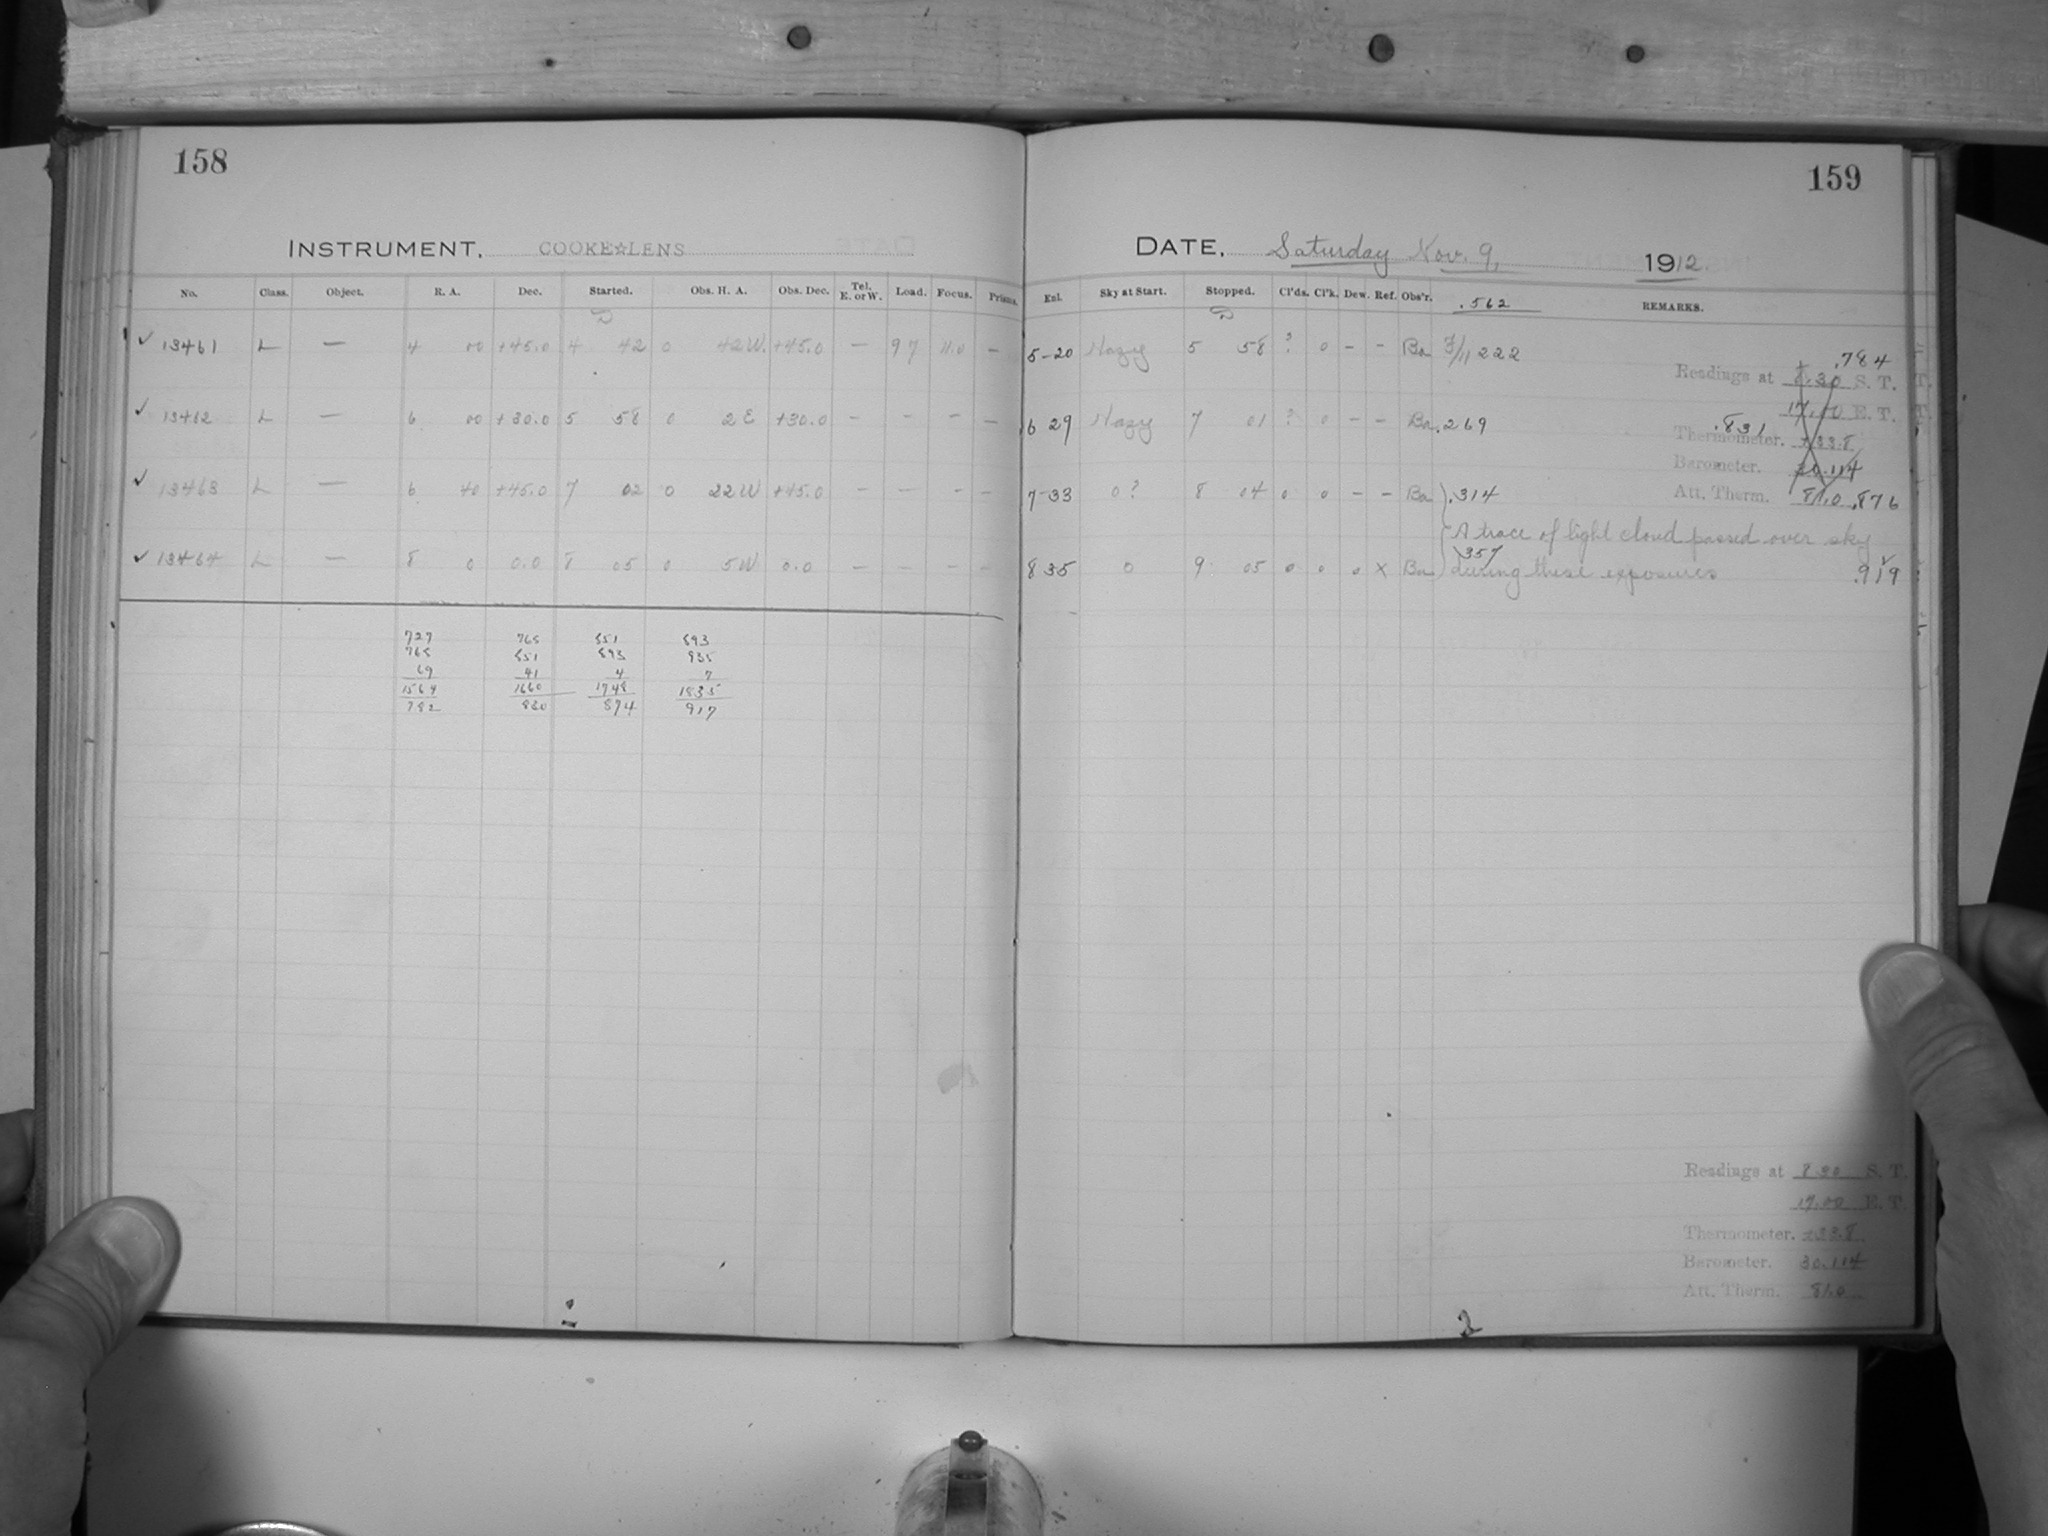 158
INSTRUMENT, COOKE☆LENS
No. Class. Object. R. A. Dec. Started. Obs. H. A. Obs. Dec. Tel. E. or W. Load. Focus. Prisms.
✓ 13461 L — 4 00 +45.0 4 42 0 42W. +45.0 — 97 11.0 —
✓ 13462 L — 6 00 +30.0 5 58 0 2E +30.0 — — — —
✓ 13463 L — 6 40 +45.0 7 02 0 22W +45.0 — — — —
✓ 13464 L — 8 0 0.0 8 05 0 5W 0.0 — — — —
727 765 851 893
765 851 893 935
69 41 4 7
1564 1660 1748 1835
782 830 874 917
159
DATE, Saturday Nov. 9, 1912.
Exl. Sky at Start. Stopped. Cl'ds. Cl'k. Dew. Ref. Obs'r. .562 REMARKS.
5-20 Hazy 5 58 ? 0 — — Ba 222
.784
Readings at 8.30 S. T.
17.00 E. T.
6 29 Hazy 7 01 ? 0 — — Ba .269 .831
Thermometer. +33.8
Barometer. 30.114
7-33 0? 8 04 0 0 — — Ba .314
Att. Therm. 81.0 .876
A trace of light cloud passed over sky
8 35 0 9 05 0 0 0 X Ba .357 during these exposures .919
Readings at 8.30 S. T.
17.00 E. T.
Thermometer. +33.8
Barometer. 30.114
Att. Therm. 81.0
2